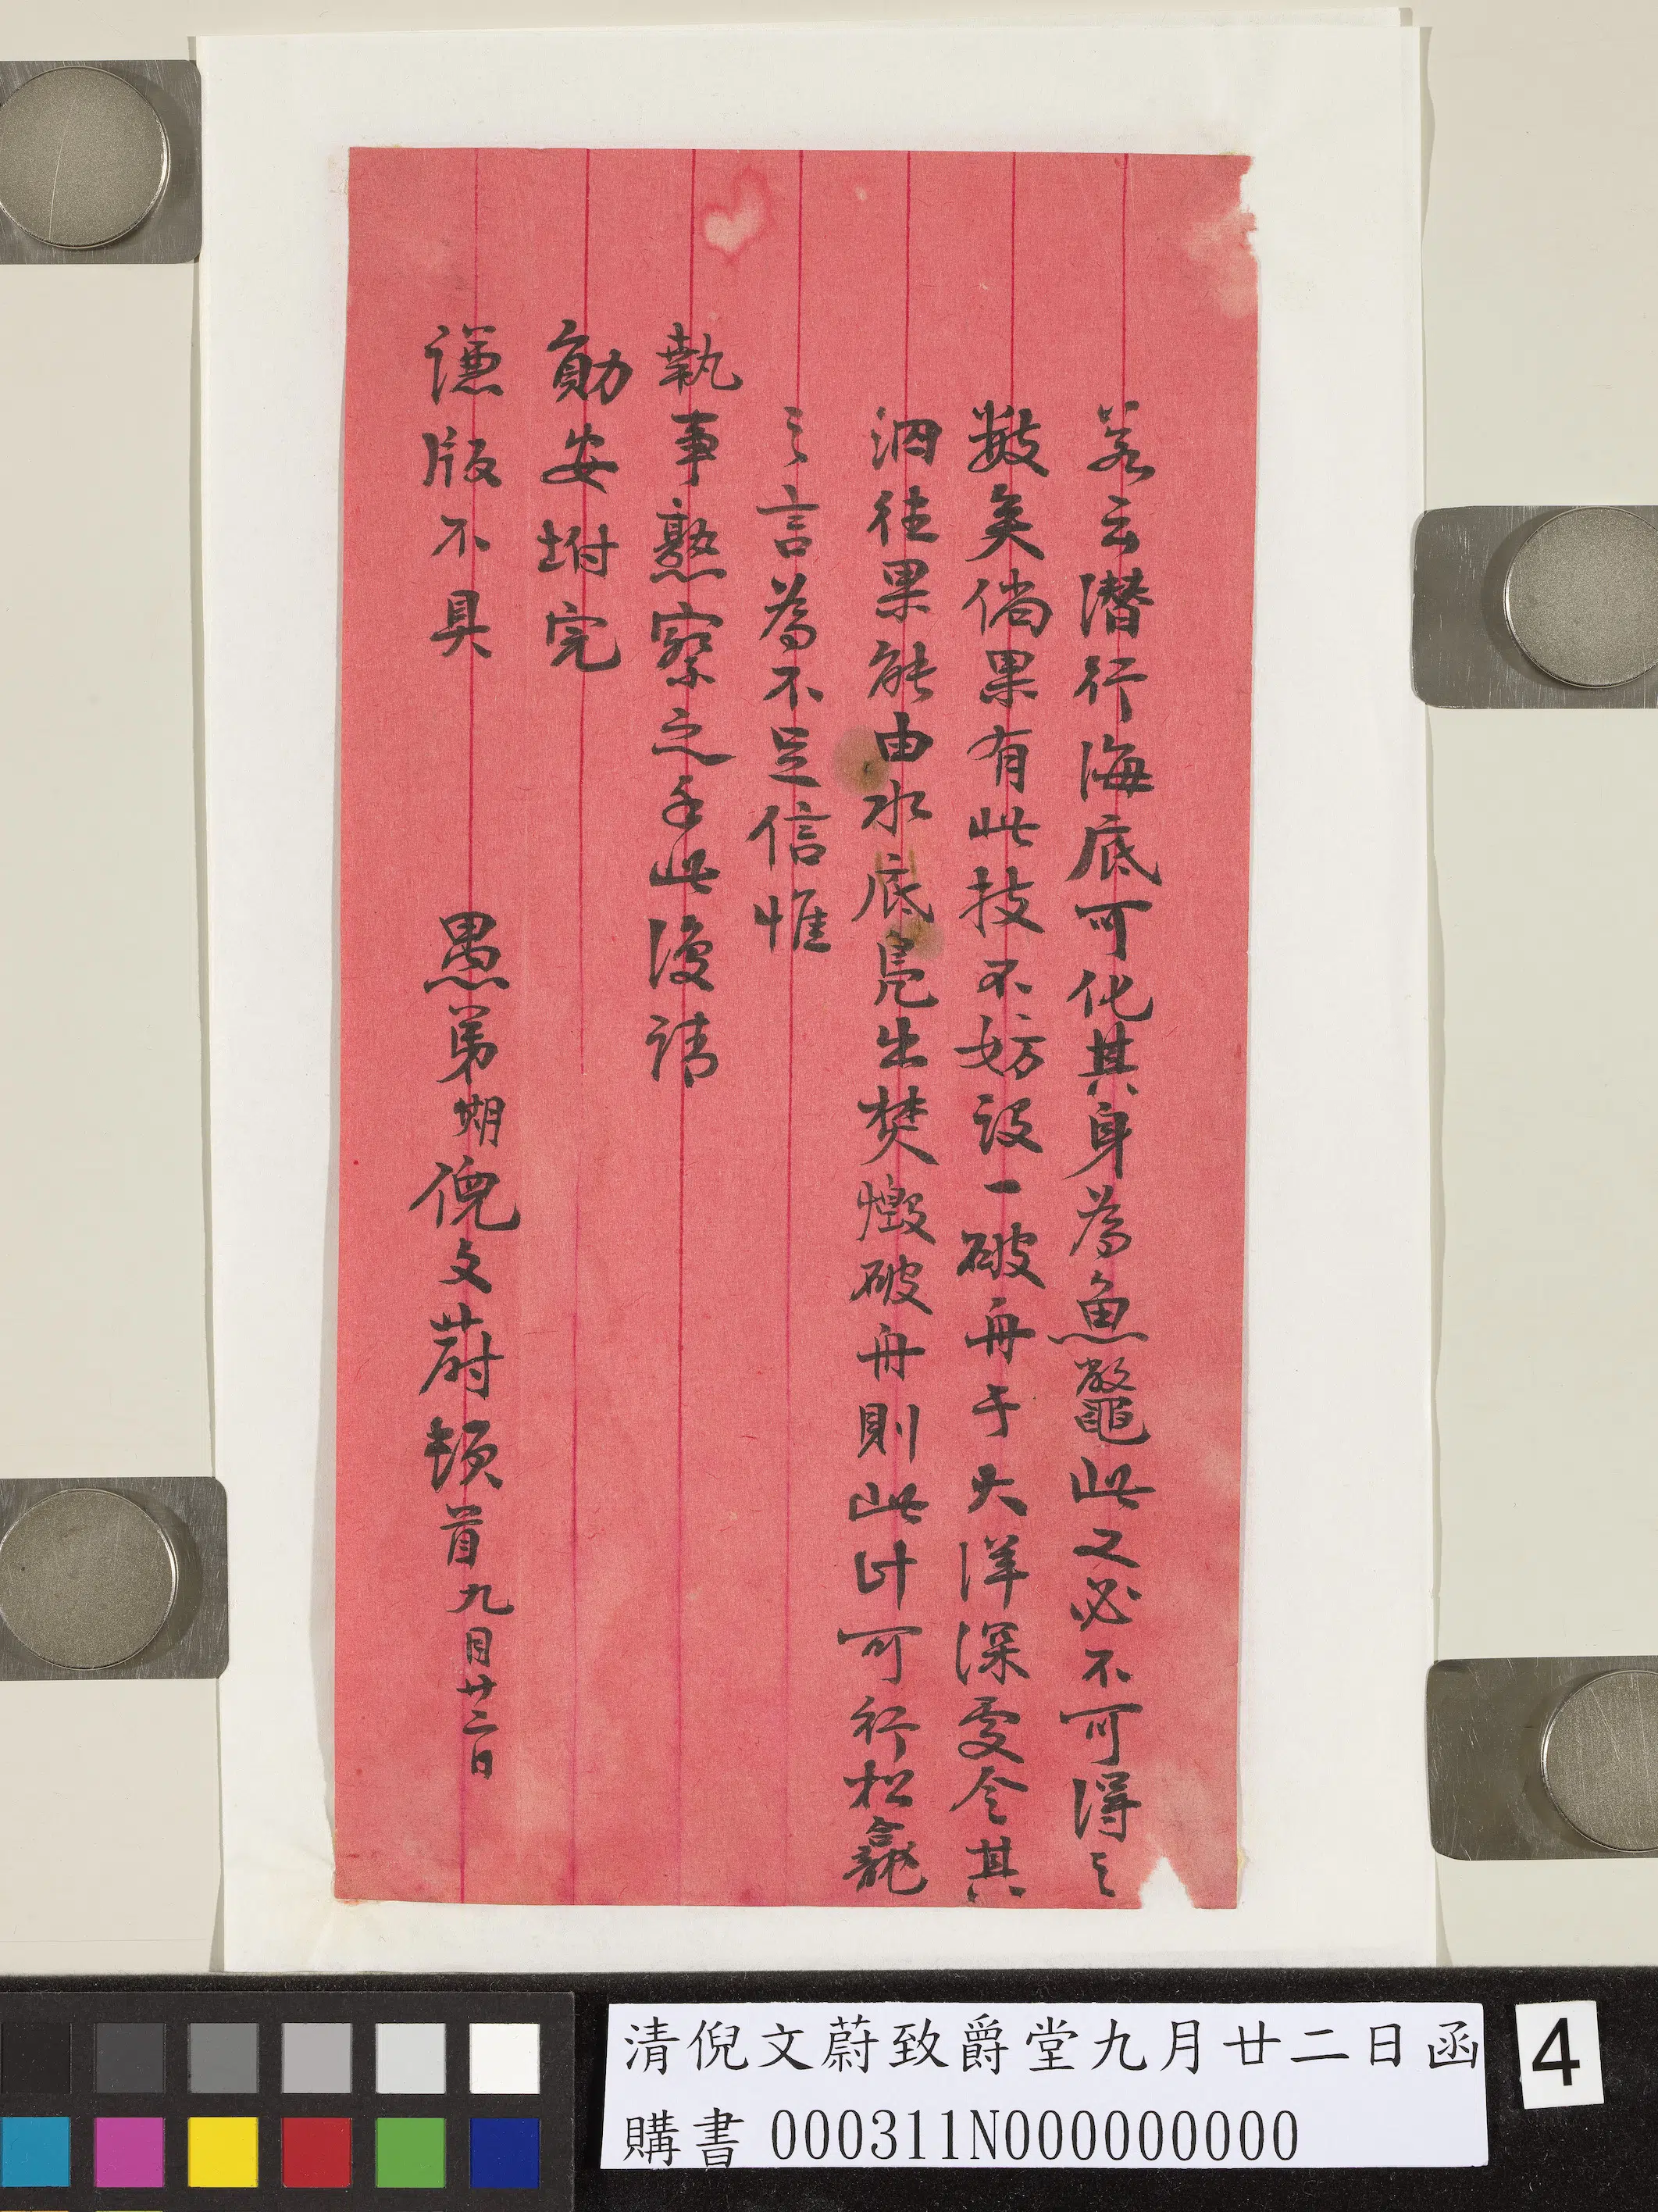 若云潛行海底可化其身為魚鼈此又必不可得之
數矣倘果有此技不妨設一破舟于大洋深處令其
泅往果能由水底鳧出焚燬破舟則此計可行松龕
之言為不足信惟
執事熟察之手此復請
勛安坿完
謙版不具
愚弟期倪文蔚頓首九月廿二日
清倪文蔚致爵堂九月廿二日函
購書 000311N000000000
4